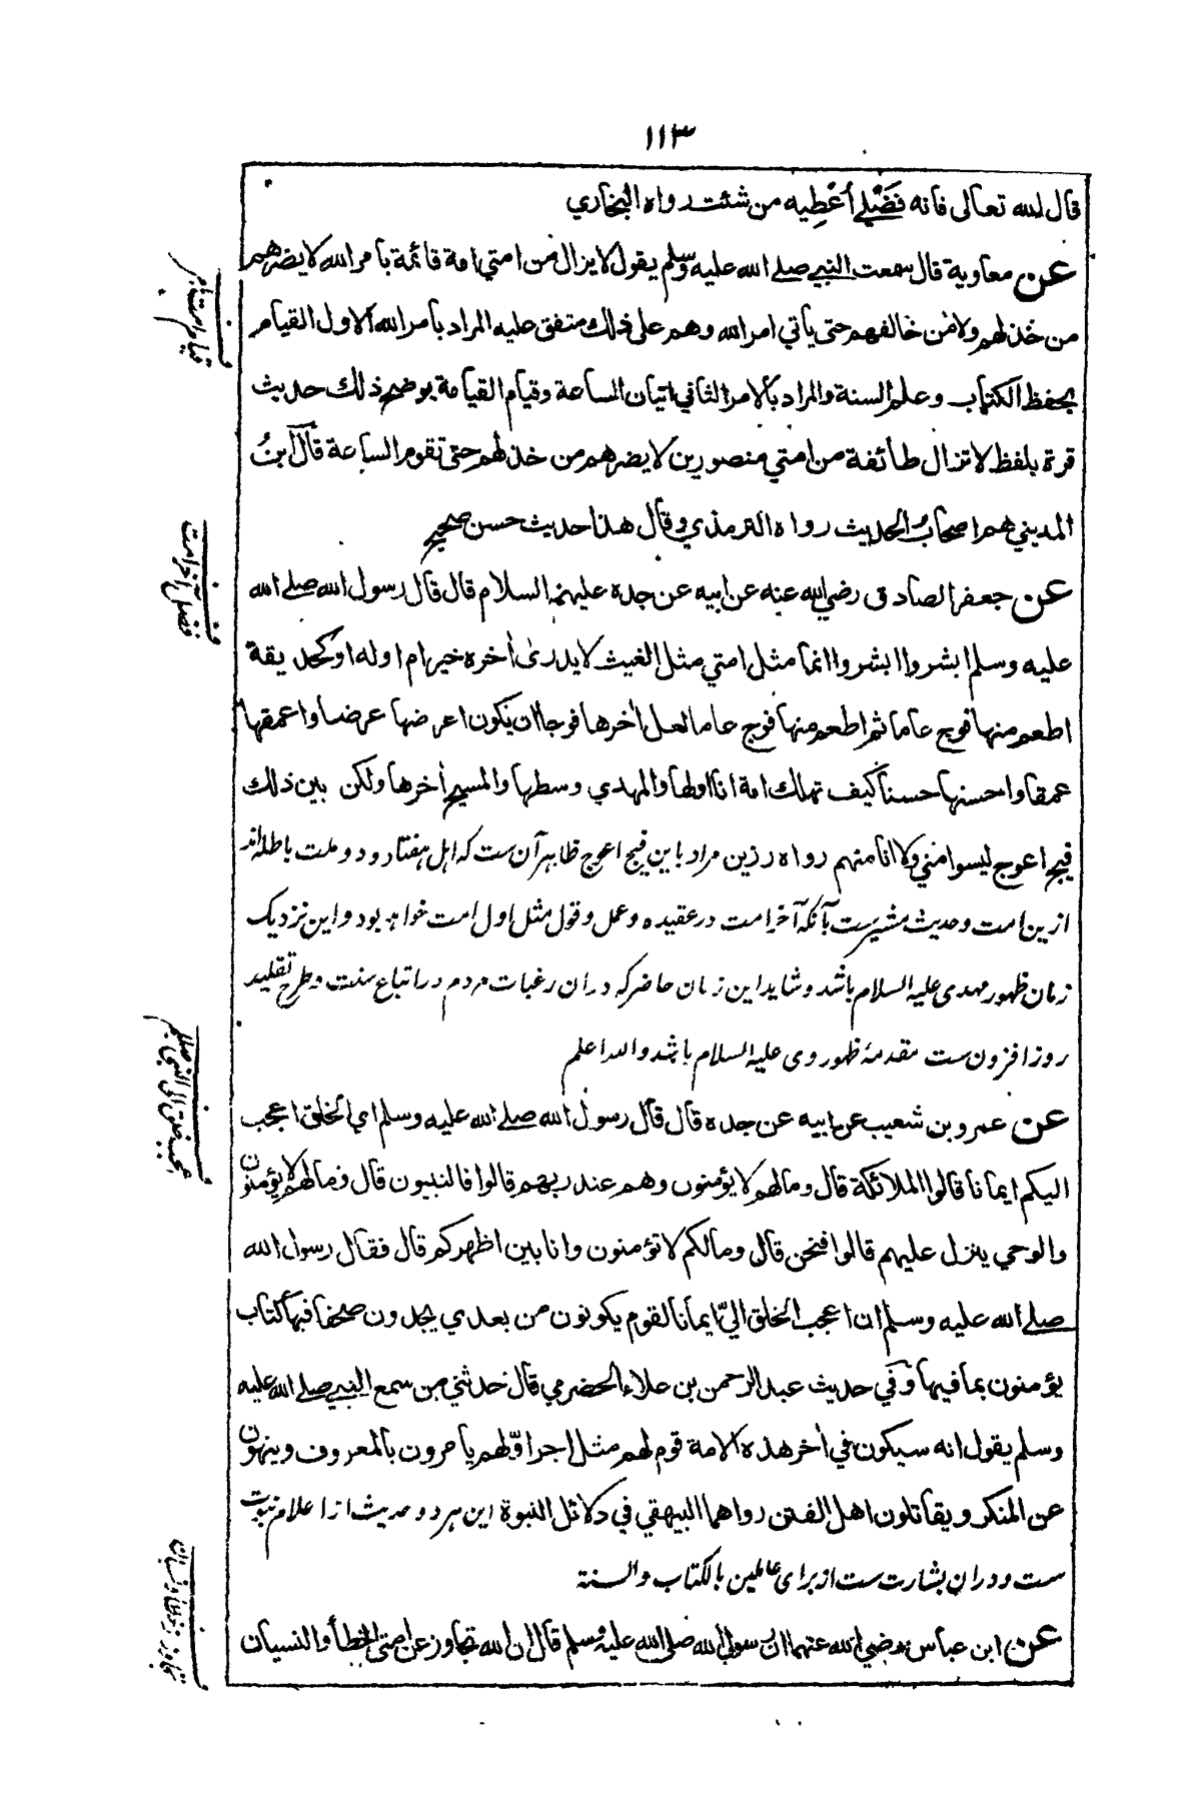 ۱۱۳
قال الله تعالى فانه فَضْلِي أُعْطِيه من شئت رواه البخاري
عن معاوية قال سمعت النبي صلى الله عليه وسلم يقول لا يزال من امتي امة قائمة بأمر الله لا يضرهم
من خذلهم ولا من خالفهم حتى يأتي امر الله وهم على ذلك متفق عليه المراد بأمر الله الاول القيام
بحفظ الكتاب وعلم السنة والمراد بالامر الثاني اتيان الساعة وقيام القيامة يوضح ذلك حديث
قرة بلفظ لا تزال طائفة من امتي منصورين لا يضرهم من خذلهم حتى تقوم الساعة قال ابنُ
المديني هم اصحابُ الحديث رواه الترمذي وقال هذا حديث حسن صحيح
عن جعفر الصادق رضي الله عنه عن ابيه عن جده عليهم السلام قال قال رسول الله صلى الله
عليه وسلم ابشروا ابشروا انما مثل امتي مثل الغيث لا يدرى أخره خير ام اوله او كحديقة
اطعم منها فوج عاما ثم اطعم منها فوج عاما لعل أخرها فوجا ان يكون اعرضها عرضا واعمقها
عمقا واحسنها حسنا كيف تهلك امة انا اولها والمهدي وسطها والمسيح أخرها ولكن بين ذلك
فيج اعوج ليسوا مني ولا انا منهم رواه رزين مراد باين فيج اعوج ظاهر آن ست كه اهل هفتاد و دو ملت باطله اند
ازين امت وحديث مشيرست بآنكه آخر امت در عقيده وعمل وقول مثل اول امت خواهد بود واين نزديك
زمان ظهور مهدى عليه السلام باشد وشايد اين زمان حاضر كه دران رغبات مردم در اتباع سنت وطرح تقليد
روز افزون ست مقدمهٔ ظهور وى عليه السلام باشد والله اعلم
عن عمرو بن شعيب عن ابيه عن جده قال قال رسول الله صلى الله عليه وسلم اي الخلق اعجب
اليكم ايمانا قالوا الملائكة قال وما لهم لا يؤمنون وهم عند ربهم قالوا فالنبيون قال وما لهم لا يؤمنون
والوحي ينزل عليهم قالوا فنحن قال وما لكم لا تؤمنون وانا بين اظهركم قال فقال رسول الله
صلى الله عليه وسلم ان اعجب الخلق اليّ ايمانا لقوم يكونون من بعدي يجدون صحفا فيها كتاب
يؤمنون بما فيها وفي حديث عبد الرحمن بن علاء الحضرمي قال حدثني من سمع النبي صلى الله عليه
وسلم يقول انه سيكون في أخر هذه الامة قوم لهم مثل اجر اوّلهم يأمرون بالمعروف وينهون
عن المنكر ويقاتلون اهل الفتن رواهما البيهقي في دلائل النبوة اين هر دو حديث از اعلام نبوت
ست ودران بشارت ست از براى عاملين بالكتاب والسنة
عن ابن عباس رضي الله عنهما ان رسول الله صلى الله عليه وسلم قال ان الله تجاوز عن امتي الخطأ والنسيان
قيام امت بامر
فضل آخر امت